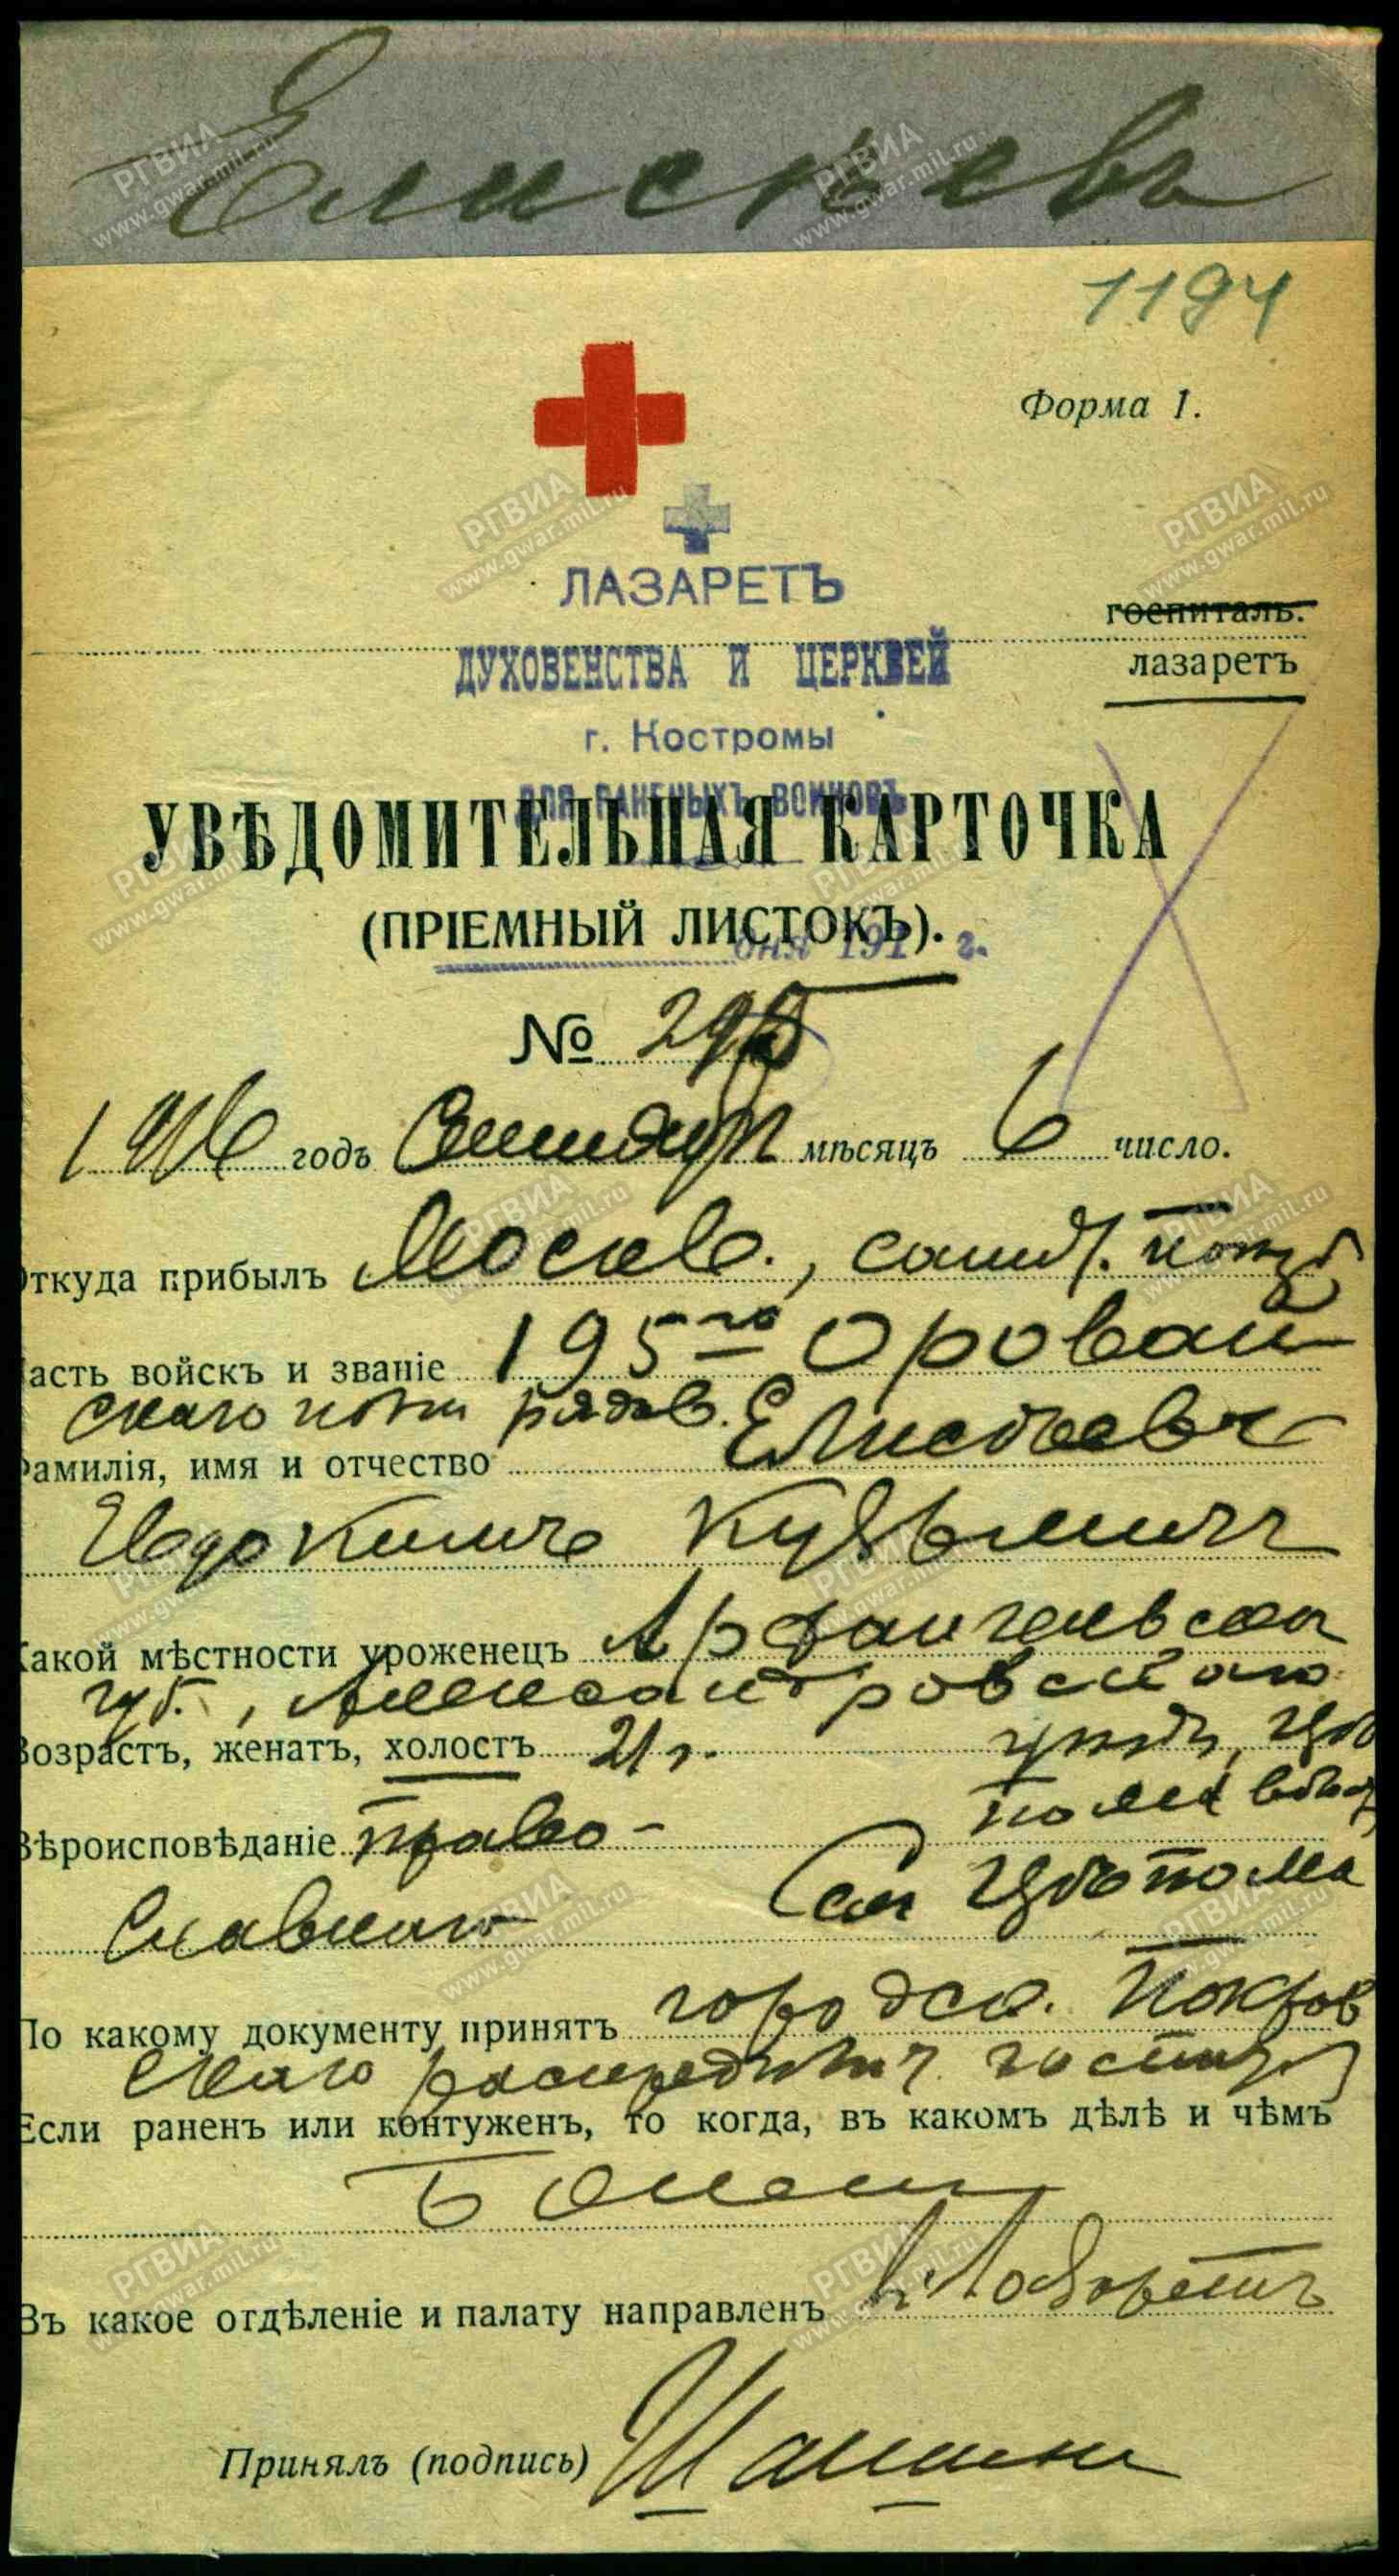 Елисеевъ
1194
Форма 1.
ЛАЗАРЕТЪ
госпиталь.
ДУХОВЕНСТВА И ЦЕРКВЕЙ
лазаретъ
г. Костромы
ДЛЯ РАНЕНЫХЪ ВОИНОВЪ
УВѢДОМИТЕЛЬНАЯ КАРТОЧКА
(ПРІЕМНЫЙ ЛИСТОКЪ).
дня 191 г.
№ 295
1916 годъ Сентября мѣсяцъ 6 число.
Откуда прибылъ Москва, санит. поѣзд
Часть войскъ и званіе 195го Оровай
скаго полка рядов.
Фамилія, имя и отчество Елисѣевъ
Евдокимъ Кузьмичъ
Какой мѣстности уроженецъ Архангельской
губ., Александровскаго
Возрастъ, женатъ, холостъ 21 г. уѣзда,
Вѣроисповѣданіе право-
славнаго
По какому документу принятъ городск. Покров
скаго распредѣлит. госпит
Если раненъ или контуженъ, то когда, въ какомъ дѣлѣ и чѣмъ
Боленъ
Въ какое отдѣленіе и палату направленъ въ Лазаретъ
Принялъ (подпись)
РГВИА
www.gwar.mil.ru